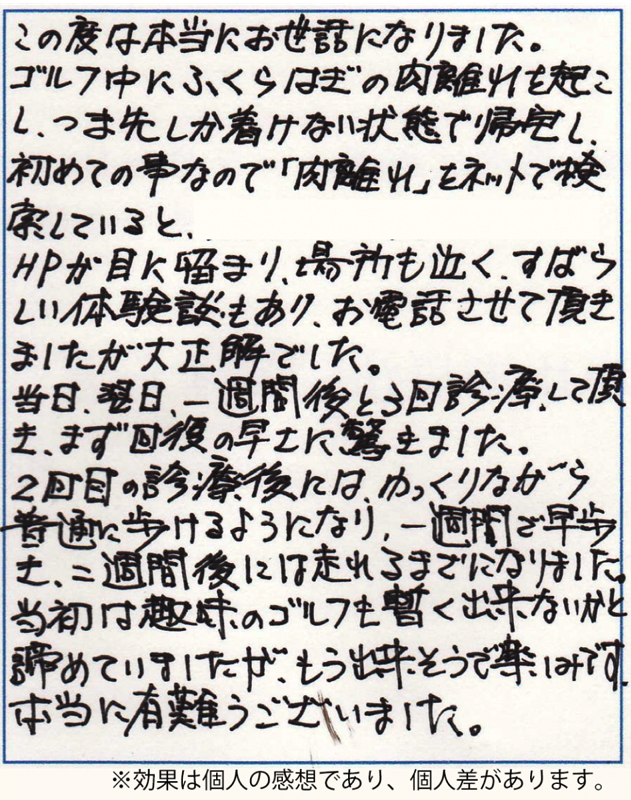 この度は本当にお世話になりました。
ゴルフ中にふくらはぎの肉離れを起こ
し、つま先しか着けない状態で帰宅し、
初めての事なので「肉離れ」をネットで検
索していると、
HPが目に留まり、場所も近く、すばら
しい体験談もあり、お電話させて頂き
ましたが大正解でした。
当日、翌日、一週間後と3回診療して頂
き、まず回復の早さに驚きました。
2回目の診療後には、ゆっくりながら
普通に歩けるようになり、一週間で早歩
き、二週間後には走れるまでになりました。
当初は趣味のゴルフも暫く出来ないかと
諦めていましたが、もう出来そうで楽しみです。
本当に有難うございました。
※効果は個人の感想であり、個人差があります。